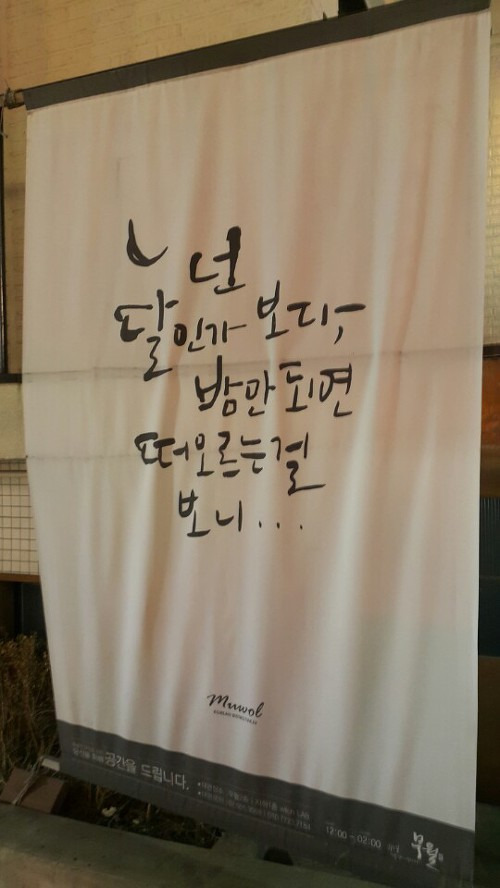 넌
달인가 보다,
밤만 되면
떠오르는걸
보니...
Muwol
공간을 드립니다.
12:00 - 02:00
무월